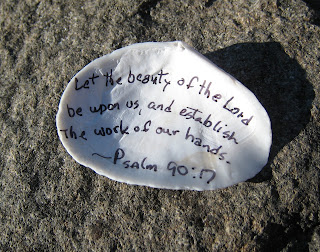 Let the beauty of the Lord
be upon us, and establish
The work of our hands.
~Psalm 90:17